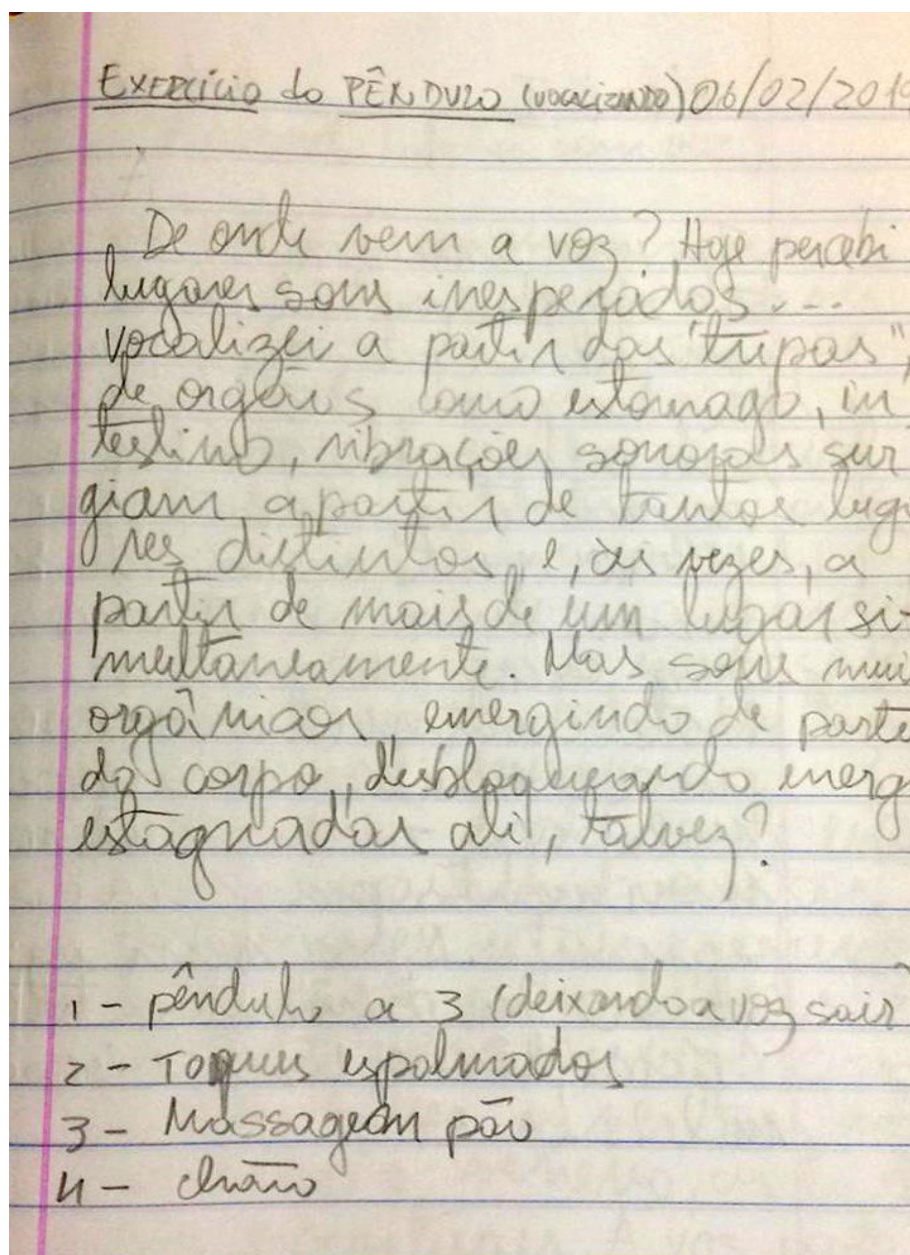 EXERCÍCIO do PÊNDULO (VOCALIZANDO) 06/02/2019
De onde vem a voz? Hoje percebi
lugares sons inesperados...
vocalizei a partir das "tripas",
de orgãos como estomago, in
testino, vibrações sonoras sur
giam a partir de tantos luga
res distintos e, às vezes, a
partir de mais de um lugar si-
multaneamente. Mas sons mui
orgânicos, emergindo de parte
do corpo, desbloqueando energ
estagnadas ali, talvez?
1 - pêndulo a 3 (deixando a voz sair)
2 - Toques espalmados
3 - Massagem pão
4 - chão